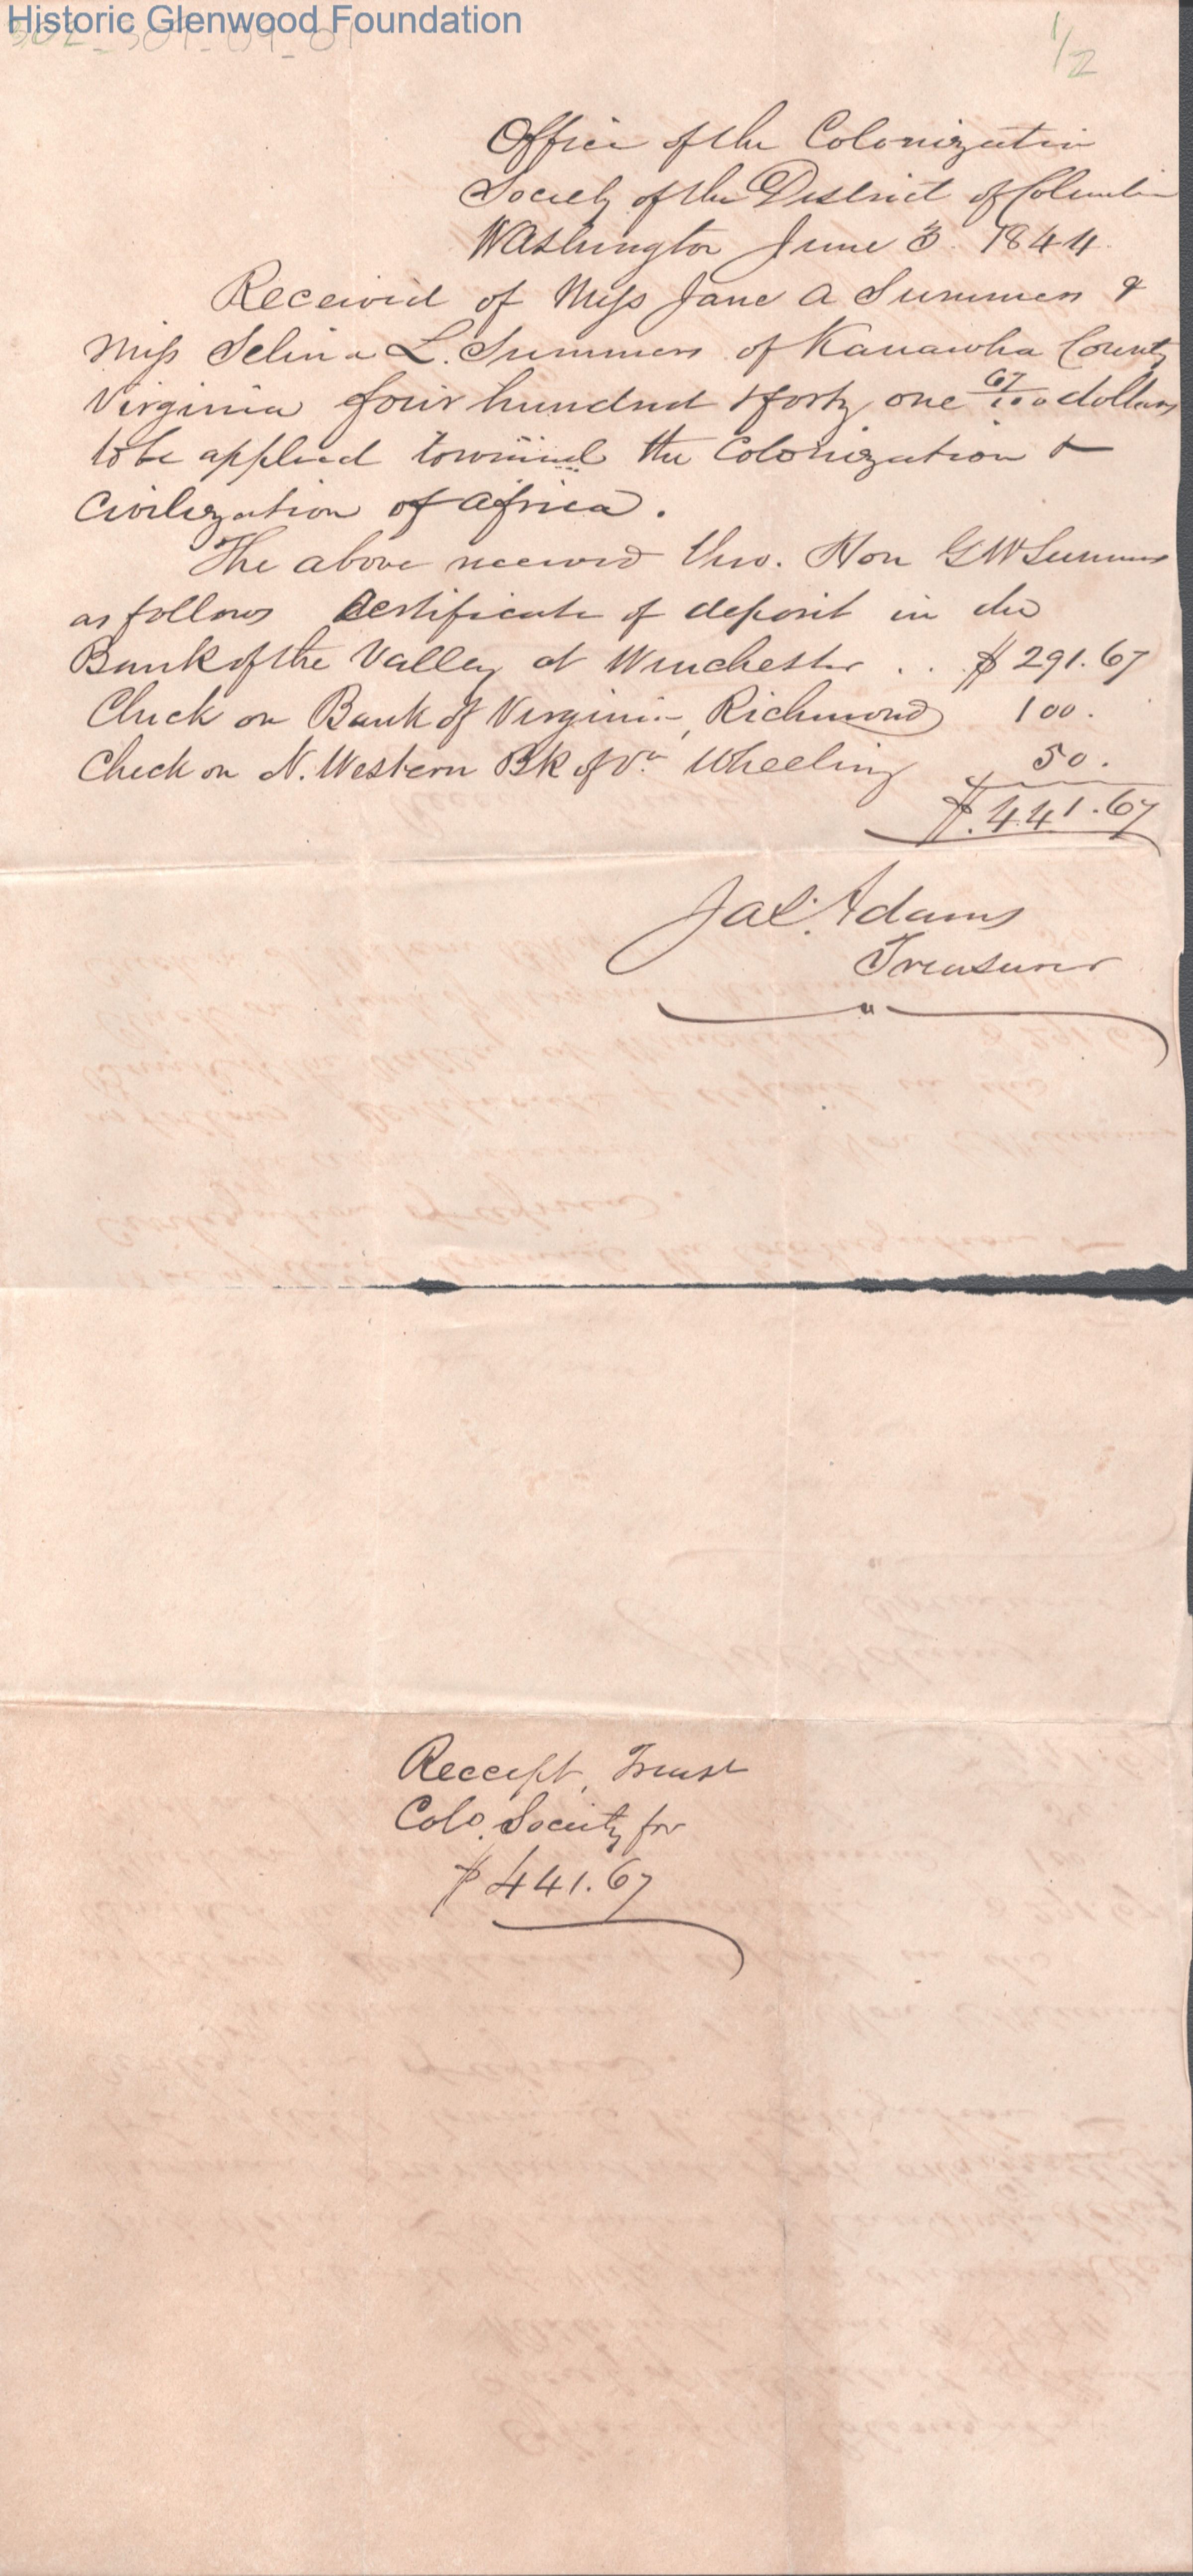 Historic Glenwood Foundation
1/2
Office of the Colonization
Society of the District of Columbia
Washington June 3. 1844.
Received of Miss Jane A Summers &
Miss Selina L. Summers of Kanawha County
Virginia four hundred & forty one 67/100 dollars
to be applied toward the Colonization &
Civilization of Africa.
The above received thro. Hon G W Summers
as follows Certificate of deposit in the
Bank of the Valley at Winchester .. $ 291.67
Check on Bank of Virginia, Richmond 100.
Check on N. Western Bk of Va Wheeling 50.
$.441.67
Jas. Adams
Treasurer
Receipt, Treasr
Colo. Society for
$441.67